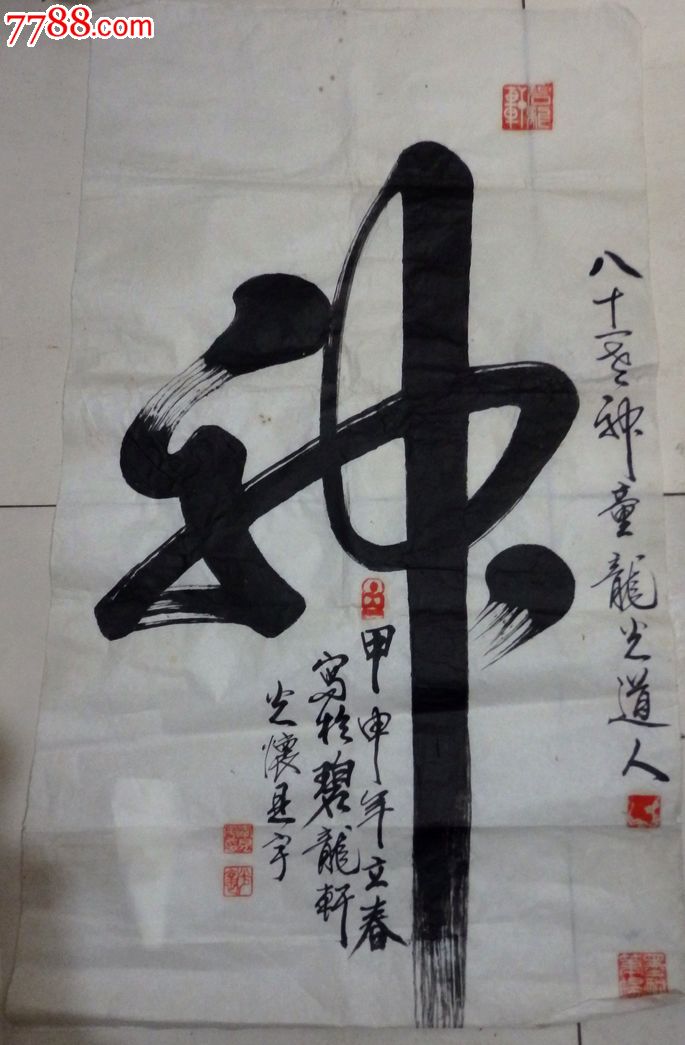 7788.com
神
八十一老神童龍光道人
甲申年立春
寫於碧龍軒
光懷是宇
碧龍軒